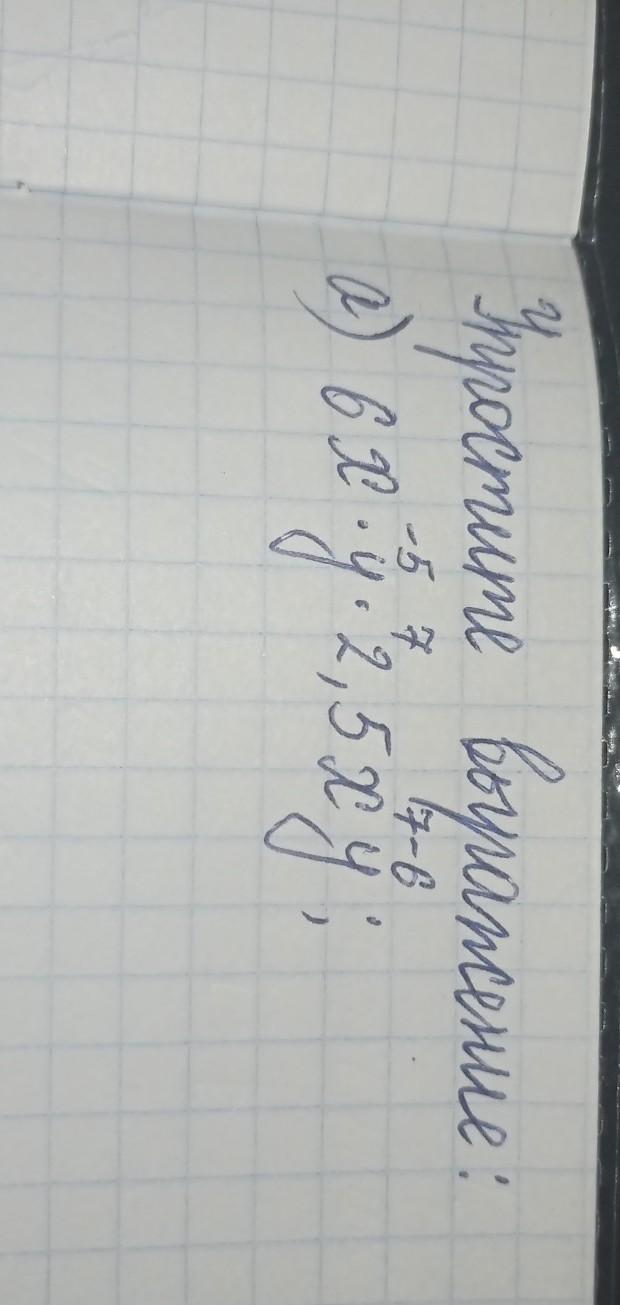 Упростите выражение:
а) 6x⁻⁵ · y⁷ · 2,5x⁷y⁻⁶;